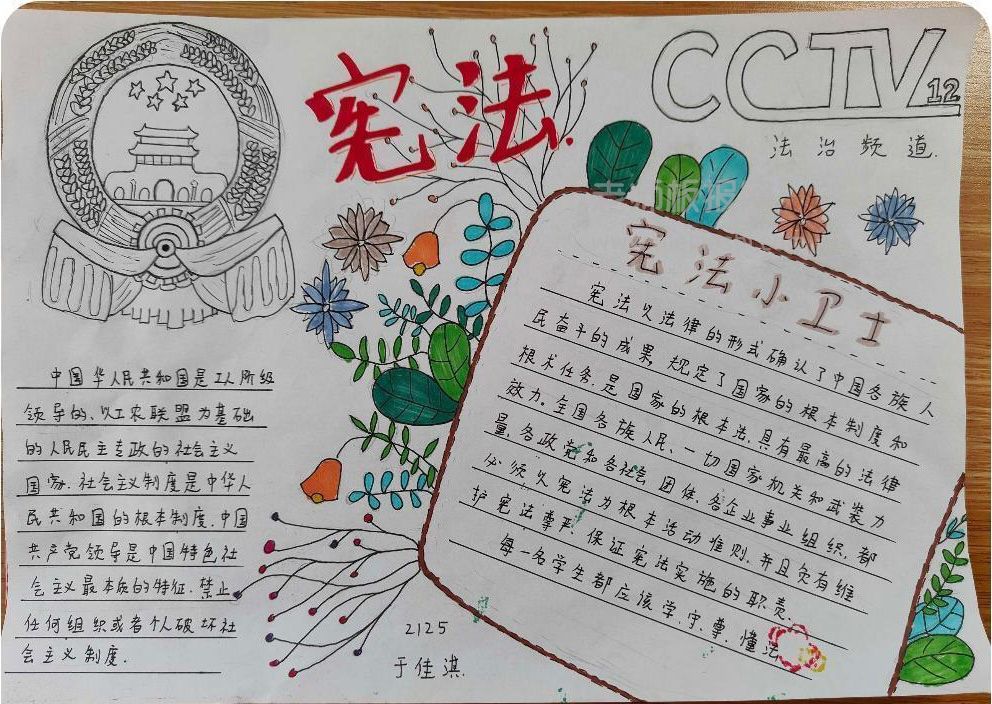 宪法
CCTV
12
法治频道.
中国华人民共和国是工人阶级
领导的、以工农联盟为基础
的人民民主专政的社会主义
国家.社会主义制度是中华人
民共和国的根本制度.中国
共产党领导是中国特色社
会主义最本质的特征.禁止
任何组织或者个人破坏社
会主义制度.
宪法小卫士
宪法以法律的形式确认了中国各族人
民奋斗的成果,规定了国家的根本制度和
根本任务.是国家的根本法,具有最高的法律
效力。全国各族人民、一切国家机关和武装力
量,各政党和各社会团体,各企业事业组织,都
必须以宪法为根本活动准则,并且负有维
护宪法尊严、保证宪法实施的职责.
每一名学生都应该学.守.尊.懂法
2125
于佳淇.